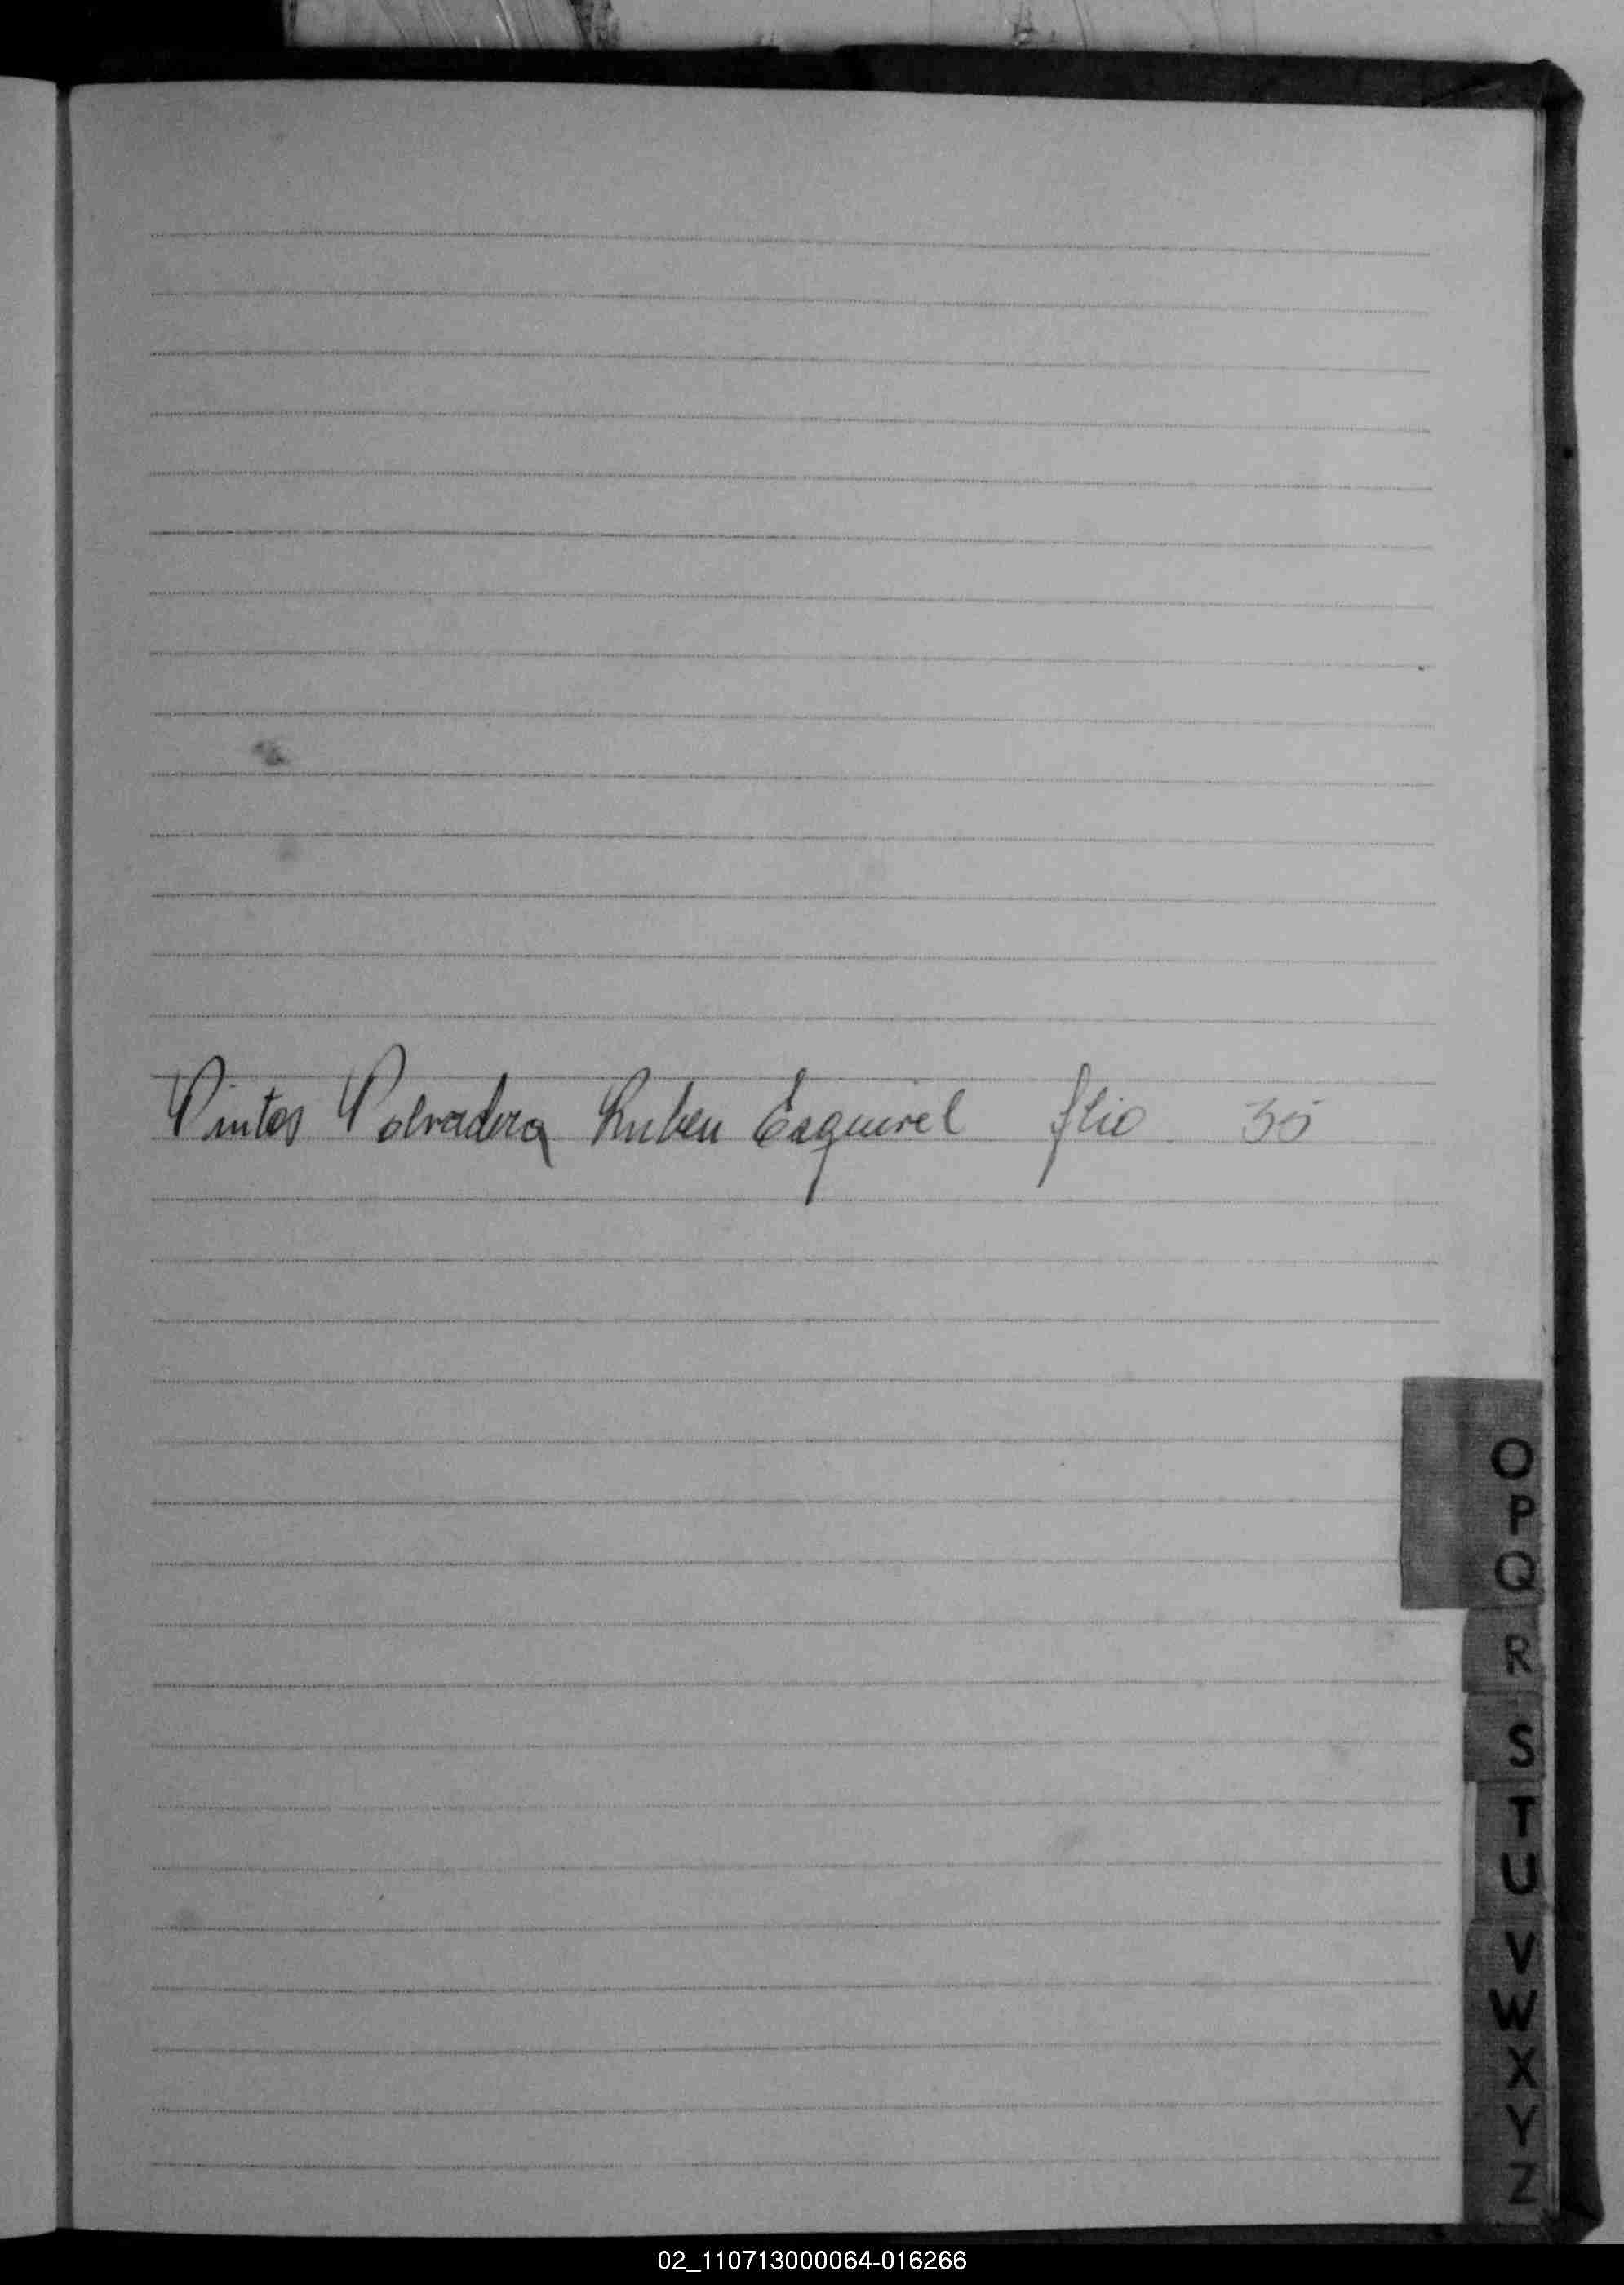 Pintos Polvadera Ruben Esquivel flio 35
O
P
Q
R
S
T
U
V
W
X
Y
Z
02_110713000064-016266